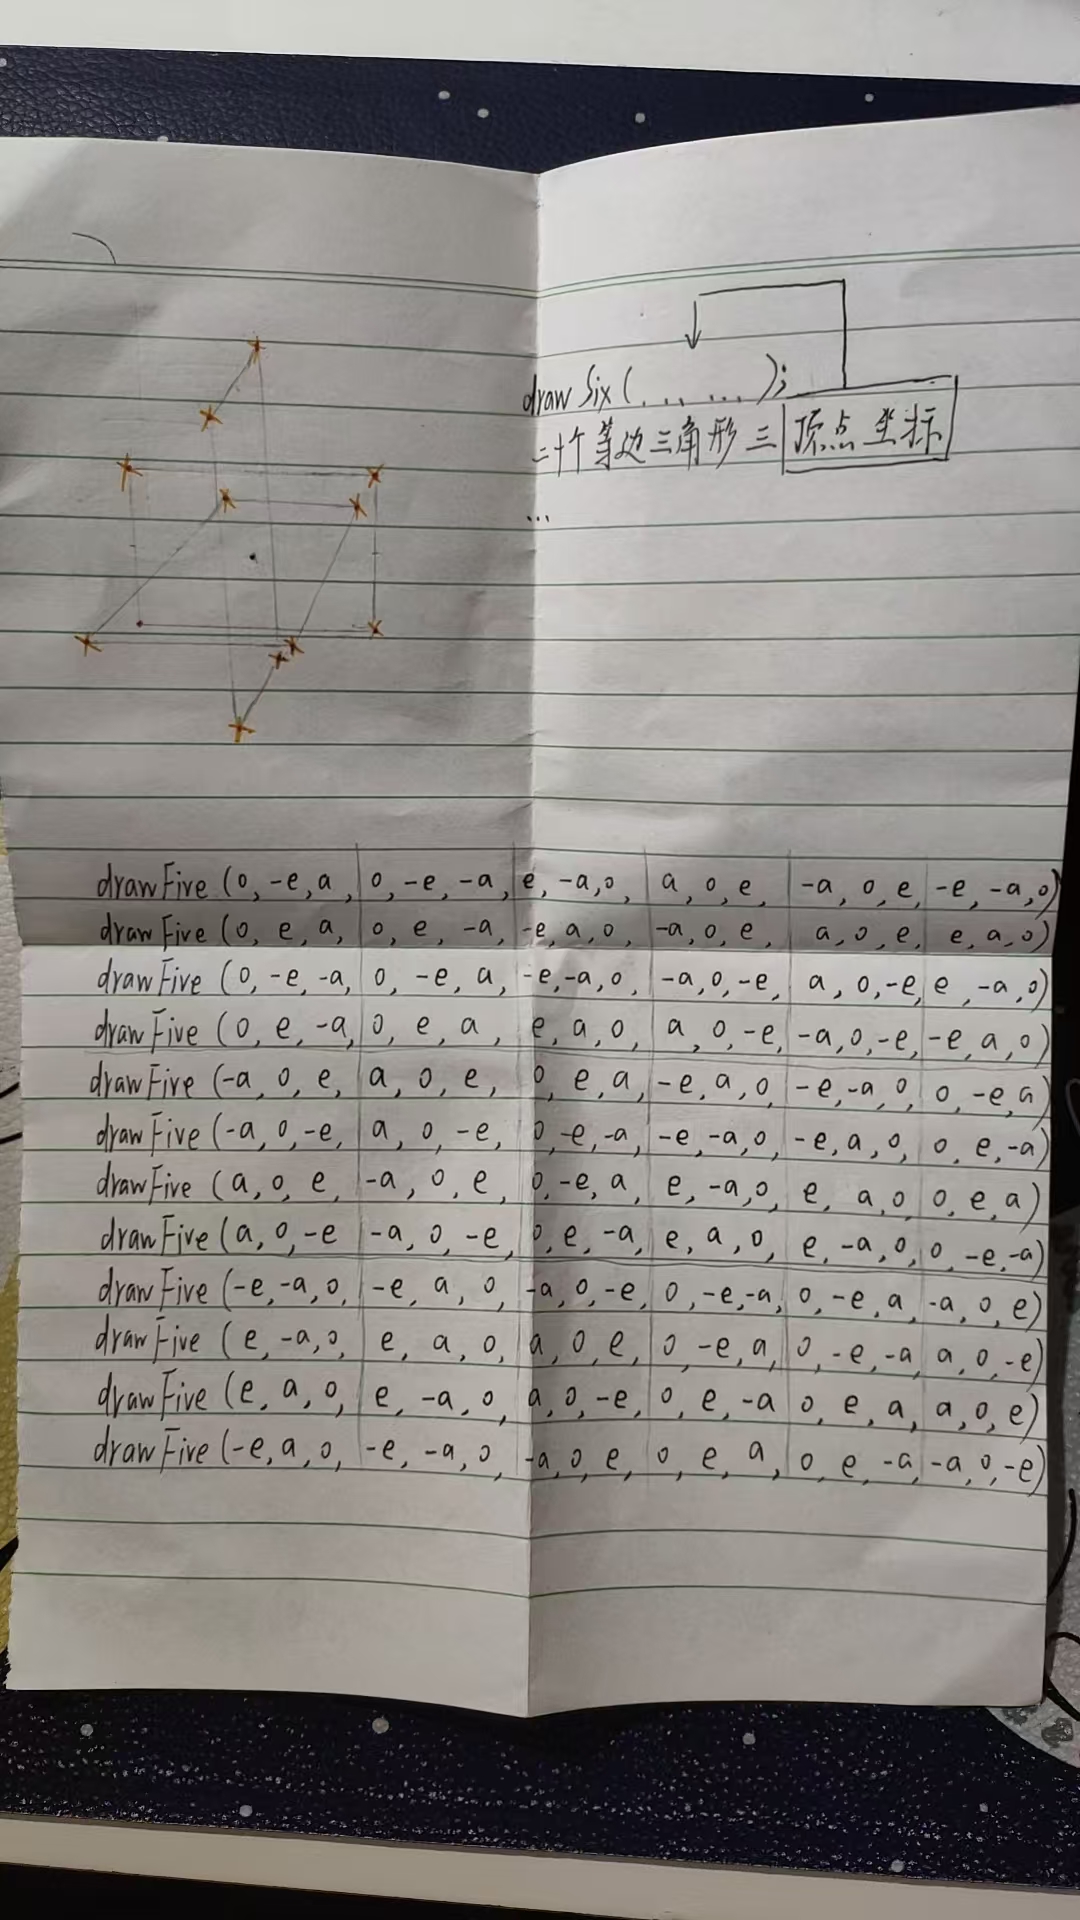 draw Six (... ...);
二十个等边三角形三顶点坐标
...
drawFive (0, -e, a, 0, -e, -a, e, -a, 0, a, 0, e, -a, 0, e, -e, -a, 0)
drawFive (0, e, a, 0, e, -a, -e, a, 0, -a, 0, e, a, 0, e, e, a, 0)
drawFive (0, -e, -a, 0, -e, a, -e, -a, 0, -a, 0, -e, a, 0, -e, e, -a, 0)
drawFive (0, e, -a, 0, e, a, e, a, 0, a, 0, -e, -a, 0, -e, -e, a, 0)
drawFive (-a, 0, e, a, 0, e, 0, e, a, -e, a, 0, -e, -a, 0, 0, -e, a)
drawFive (-a, 0, -e, a, 0, -e, 0, -e, -a, -e, -a, 0, -e, a, 0, 0, e, -a)
drawFive (a, 0, e, -a, 0, e, 0, -e, a, e, -a, 0, e, a, 0 0, e, a)
drawFive (a, 0, -e -a, 0, -e, 0, e, -a, e, a, 0, e, -a, 0, 0, -e, -a)
drawFive (-e, -a, 0, -e, a, 0, -a, 0, -e, 0, -e, -a, 0, -e, a, -a, 0, e)
drawFive (e, -a, 0, e, a, 0, a, 0, e, 0, -e, a, 0, -e, -a, a, 0, -e)
drawFive (e, a, 0, e, -a, 0, a, 0, -e, 0, e, -a 0, e, a, a, 0, e)
drawFive (-e, a, 0, -e, -a, 0, -a, 0, e, 0, e, a, 0, e, -a, -a, 0, -e)